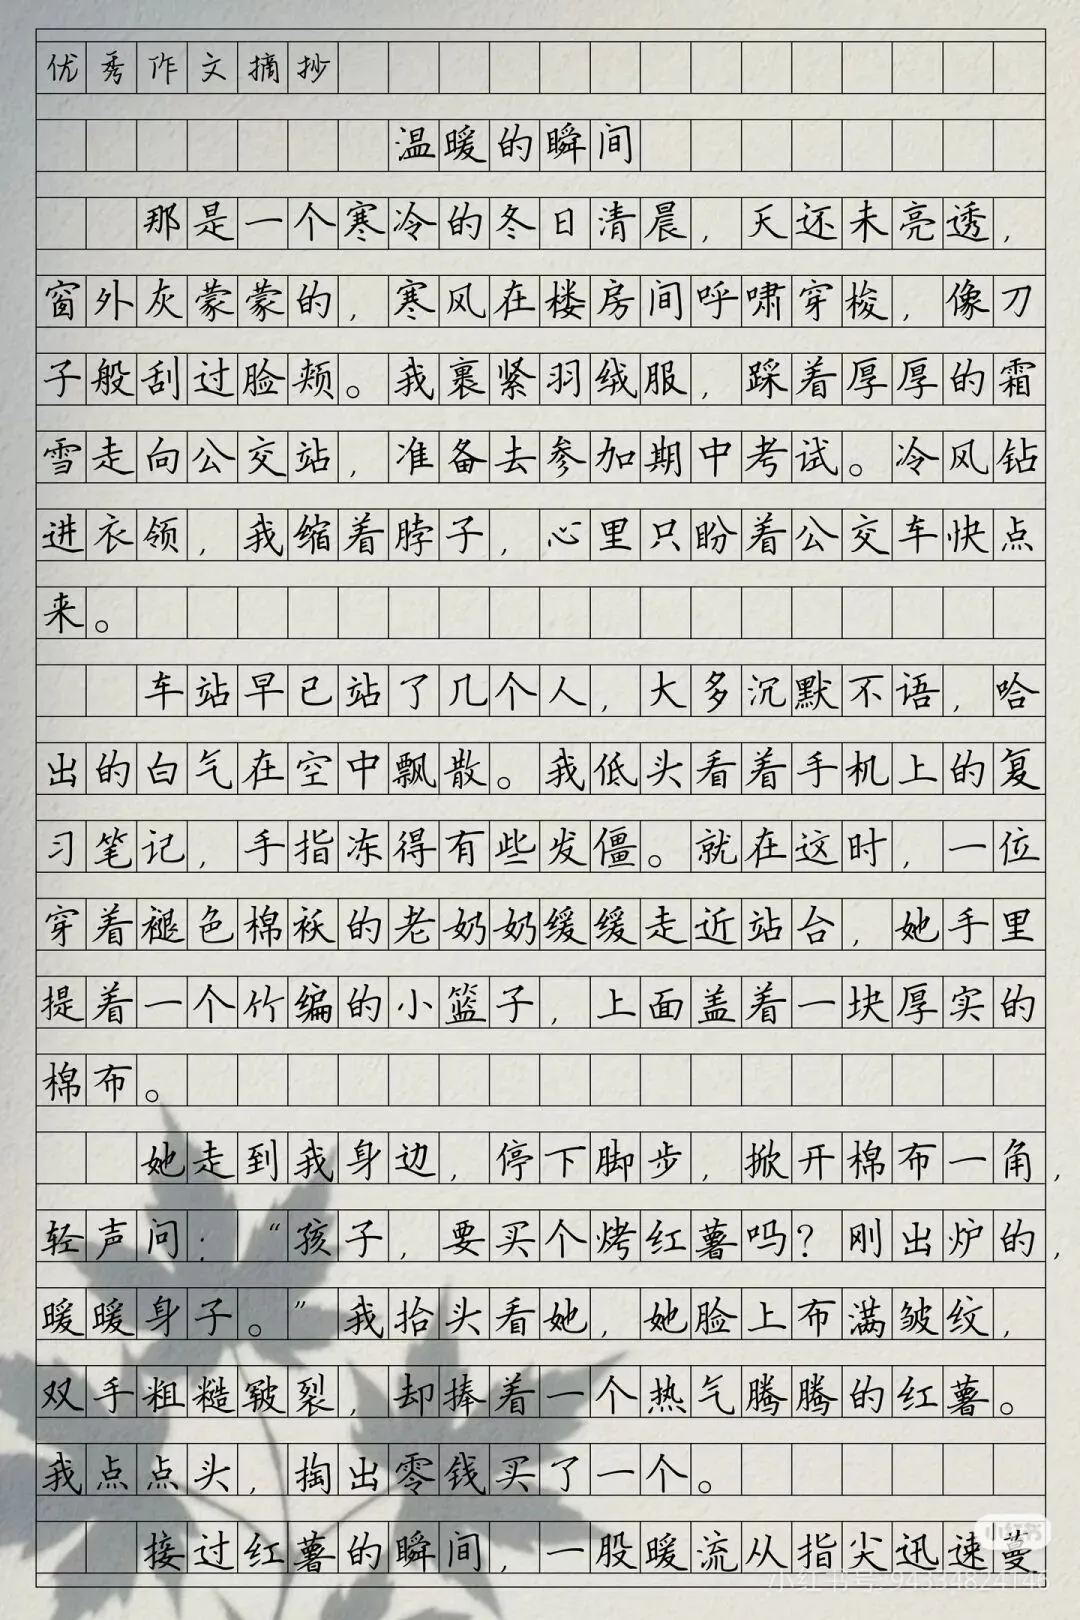 优秀作文摘抄
温暖的瞬间
那是一个寒冷的冬日清晨，天还未亮透，
窗外灰蒙蒙的，寒风在楼房间呼啸穿梭，像刀
子般刮过脸颊。我裹紧羽绒服，踩着厚厚的霜
雪走向公交站，准备去参加期中考试。冷风钻
进衣领，我缩着脖子，心里只盼着公交车快点
来。
车站早已站了几个人，大多沉默不语，哈
出的白气在空中飘散。我低头看着手机上的复
习笔记，手指冻得有些发僵。就在这时，一位
穿着褪色棉袄的老奶奶缓缓走近站台，她手里
提着一个竹编的小篮子，上面盖着一块厚实的
棉布。
她走到我身边，停下脚步，掀开棉布一角，
轻声问：“孩子，要买个烤红薯吗？刚出炉的，
暖暖身子。”我抬头看她，她脸上布满皱纹，
双手粗糙皲裂，却捧着一个热气腾腾的红薯。
我点点头，掏出零钱买了一个。
接过红薯的瞬间，一股暖流从指尖迅速蔓
小红书
小红书号: 94334824146